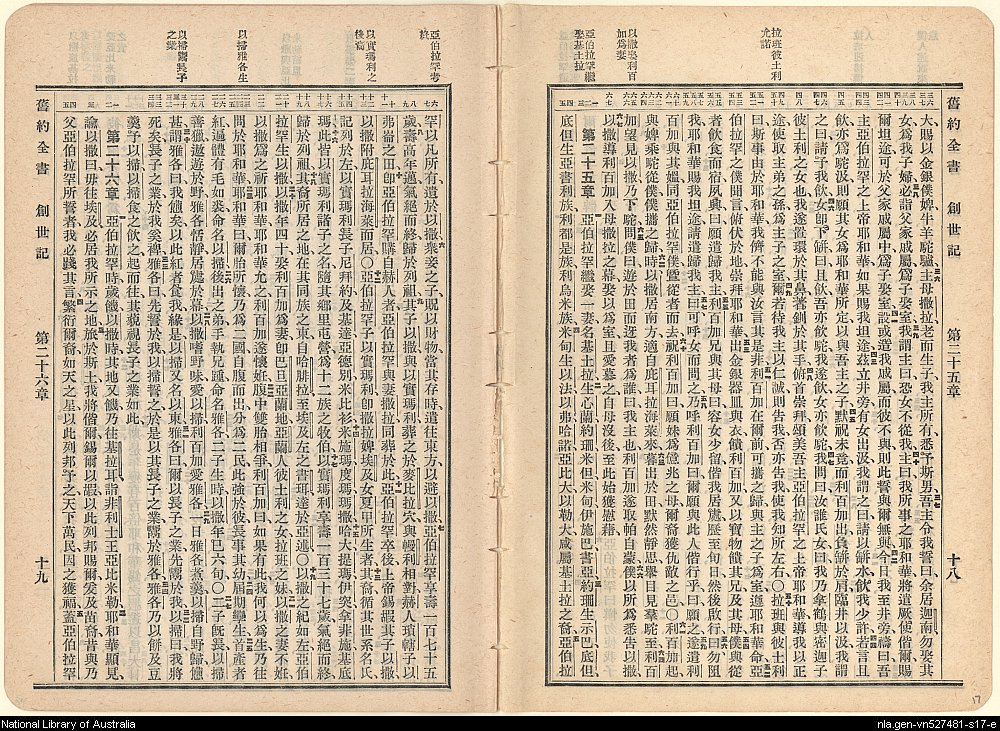 舊約全書 創世記 第二十五章 十八
拉班彼土利允諾
以撒娶利百加為妻
亞伯拉罕繼娶基土拉
大賜以金銀僕婢牛羊駝驢主母撒拉老而生子我主所有悉予斯男吾主令我誓曰余居迦南勿娶其
女為我子婦必詣父家戚屬為子娶室我謂主曰恐女不從我主曰我所事之耶和華將遣厥使偕爾賜
爾坦途可於父家戚屬中為子娶室設或遣戚屬而彼不與則此誓與爾無與今日我至井旁禱曰吾
主亞伯拉罕之上帝耶和華如果賜我坦途茲立井旁有女出汲我謂之曰請以缾水飲我少許若言且
飲亦為駝汲則願其女為耶和華所定以與吾主之子默祝未竟而利百加出負缾於肩臨井以汲我謂
之曰請予我飲女即下缾曰且飲吾亦飲駝我遂飲女亦飲駝我問曰汝誰氏女曰我乃拿鶴與密迦子
彼土利之女也我遂置環於其鼻著釧於其手俯首崇拜頌美吾主亞伯拉罕之上帝耶和華導我以正
途使取主弟之孫為主子之室爾若待我主以仁誠則告我否亦告我使我知所左右○拉班與彼土利
曰斯事由於耶和華我儕不能與汝言其是非利百加在爾前可攜之歸與主之子為室遵耶和華命亞
伯拉罕之僕聞言俯伏於地崇拜耶和華出金銀器皿與衣饋利百加又以寶物饋其兄及其母僕與從
者飲食而宿夙興曰願遣歸我主利百加兄與其母曰容女少留偕我居處歷至旬日然後啟行曰勿阻
我耶和華既賜我坦途請遣歸我主曰可呼女而問之乃呼利百加曰願與此人偕行乎曰願之遂遣利
百加與其媼同亞伯拉罕僕暨從者而去祝利百加曰願妹為億兆之母爾裔獲仇敵之邑○利百加起
與婢乘駝從僕僕攜之歸時以撒居南方適自庇耳拉海萊來暮出於田默然靜思舉目見羣駝至利百
加望見以撒乃下駝問僕曰遊於田而迓我者為誰曰我主也利百加遂取帕自蒙僕以所為悉告以撒
以撒導利百加入母撒拉之幕娶以為室且愛慕之自母沒後至此始獲慰藉
第二十五章 亞伯拉罕繼娶一妻名基土拉生心蘭約珊米但米甸伊施巴書亞約珊生示巴底但
底但生亞書利族利都是族利烏米族米甸生以法以弗哈諾亞比大以勒大咸屬基土拉之裔亞伯拉
舊約全書 創世記 第二十六章 十九
亞伯拉罕考終
以實瑪利之後裔
以掃雅各生
以掃鬻長子之業
罕以凡所有遺於以撒衆妾之子賜以財物當其存時遣往東方以避以撒亞伯拉罕享壽一百七十五
歲壽高年邁氣絕而終歸於列祖其子以撒與以實瑪利葬之於麥比拉穴與幔利相對赫人瑣轄子以
弗崙之田即亞伯拉罕購自赫人者亞伯拉罕與妻撒拉同葬於此亞伯拉罕卒後上帝錫嘏其子以撒
以撒附庇耳拉海萊而居○亞伯拉罕子以實瑪利即撒拉婢埃及女夏甲所生者其裔循其世系名氏
記列於左以實瑪利長子尼拜約及基達亞德別米比衫米施瑪度瑪瑪撒哈大提瑪伊突拿非施基底
瑪此皆以實瑪利諸子之名隨其鄉里屯營為十二族之牧伯以實瑪利享壽一百三十七歲氣絕而終
歸於列祖其裔所居之地在其同族之東自哈腓拉至埃及左之書珥遂於亞述○以撒之紀如左亞伯
拉罕生以撒以撒年四十娶利百加為妻即巴旦亞蘭地亞蘭人彼土利之女拉班之妹以撒之妻不姙
以撒為之祈耶和華耶和華允之利百加遂懷姙腹中雙胎相爭利百加曰如果有此我何以為生乃往
問於耶和華耶和華曰爾胎所懷乃為二國自腹而出分為二民此強於彼長事其幼屆期孿生首產者
紅遍體有毛如裘命名以掃後出之弟手執兄踵命名雅各二子生時以撒年已六旬○二子既長以掃
善獵遨遊於野雅各恬靜居處於幕以撒嗜野味愛以掃利百加愛雅各一日雅各煮羹以掃自野歸憊
甚謂雅各曰我憊矣以此紅者食我緣是以掃又名以東雅各曰爾以長子之業先鬻於我以掃曰我將
死矣長子之業於我奚裨雅各曰先誓於我以掃誓之於是以其長子之業鬻於雅各雅各乃以餅及豆
羹予以掃以掃食之飲之起而往其藐視長子之業如此
第二十六章 亞伯拉罕時歲饑以撒時其地又饑乃往基拉耳詣非利士王亞比米勒耶和華顯見
諭以撒曰毋往埃及必居我所示之地旅於斯土我將偕爾錫爾以嘏以此列邦賜爾爰及苗裔昔與乃
父亞伯拉罕所誓者我必踐其言繁衍爾裔如天之星以此列邦予之天下萬民因之獲福蓋亞伯拉罕
National Library of Australia
nla.gen-vn527481-s17-e
17